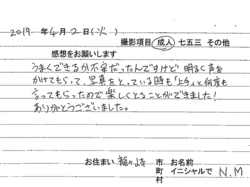 2019年4月2日(火)
撮影項目 成人 七五三 その他
感想をお願いします
うまくできるか不安だったんですけど 明るく声を
かけてもらって、写真をとっている時も「上手」と何度も
言ってもらったので楽しくとることができました!
ありがとうございました。
お住まい 龍ヶ崎 市 お名前
町 イニシャルで N.M
村